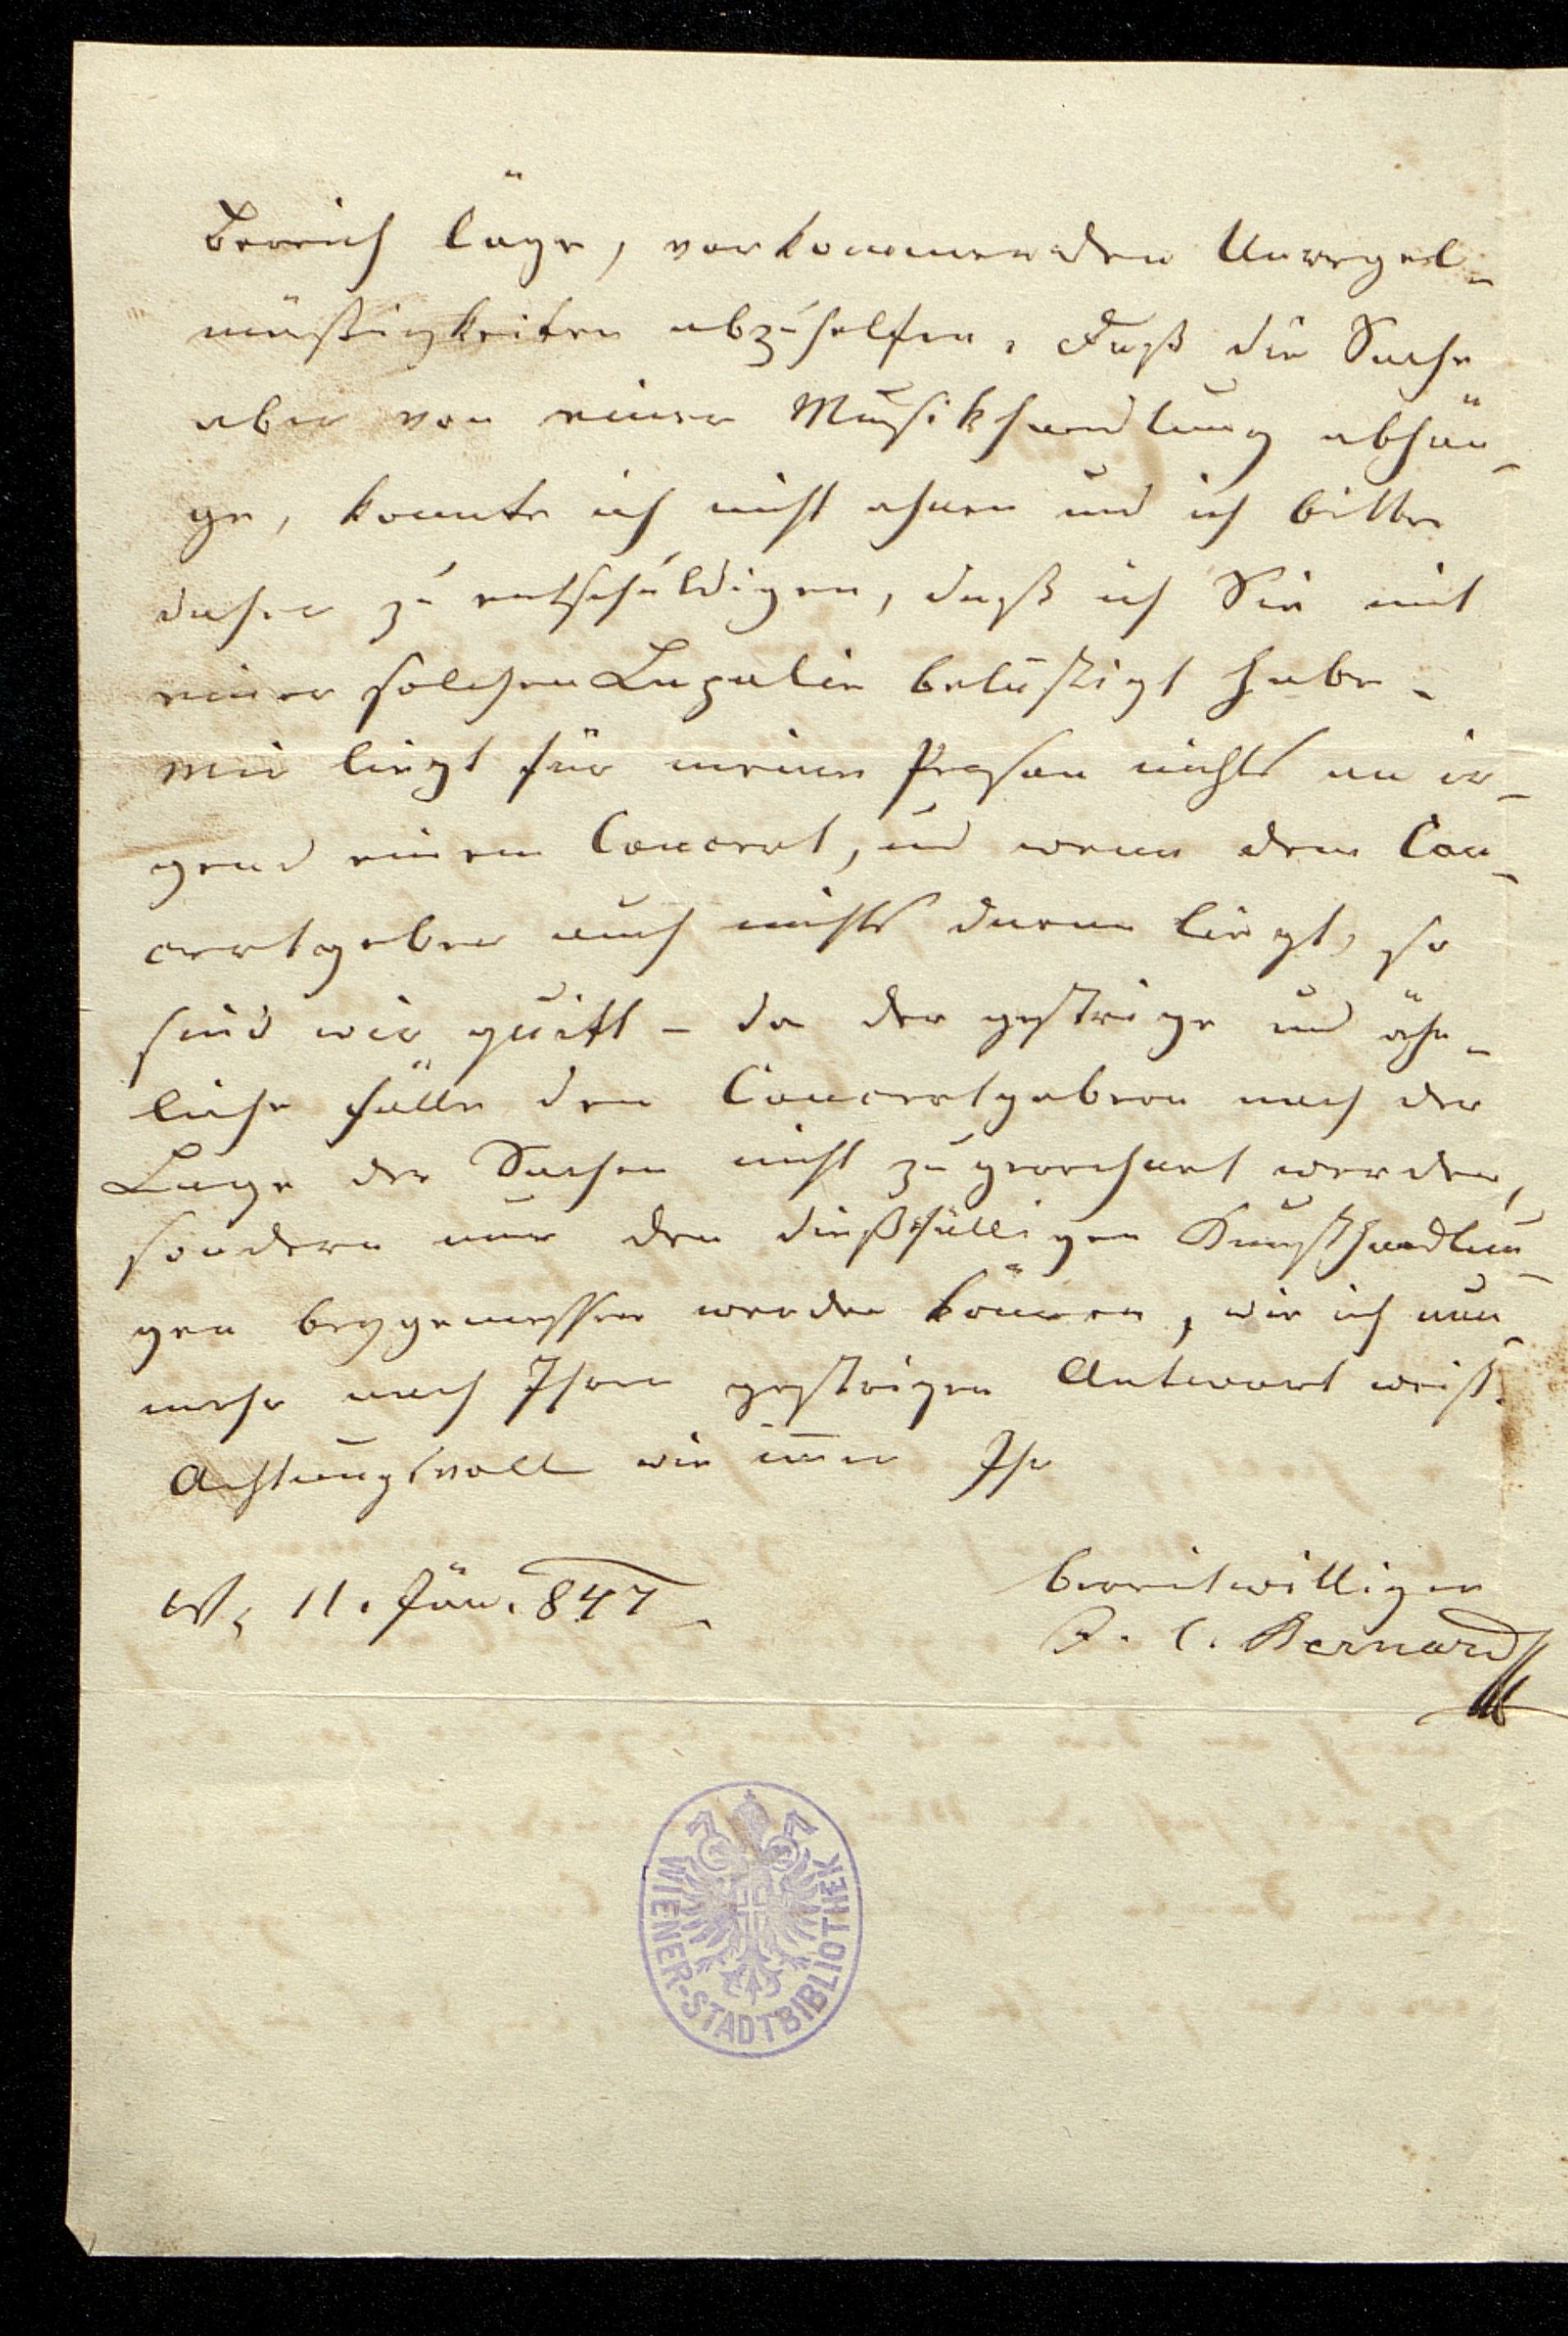 Bereich läge, vorkommenden Unregel-
mäßigkeiten abzuhelfen. Daß die Sache
aber von einer Musikhandlung abhän-
ge, konnte ich nicht ahnen und ich bitte
daher zu entschuldigen, daß ich Sie mit
einer solchen Lapalie belästigt habe.
Mir liegt für meine Person nichts an ir-
gend einem Concert, und wenn dem Con-
certgeber auch nichts daran liegt, so
sind wir quitt – da der gestrige und ähn-
liche Fälle den Concertgebern nach der
Lage der Sachen nicht zugerechnet werden,
sondern nur den dießfälligen Kunsthandlun-
gen beygemessen werden können, wie ich nun-
mehr nach Ihrer gestrigen Antwort weiß.
Achtungsvoll wie immer Ihr
bereitwilliger
W. 11. Jän. 847.
J. C. Bernard
WIENER-STADTBIBLIOTHEK